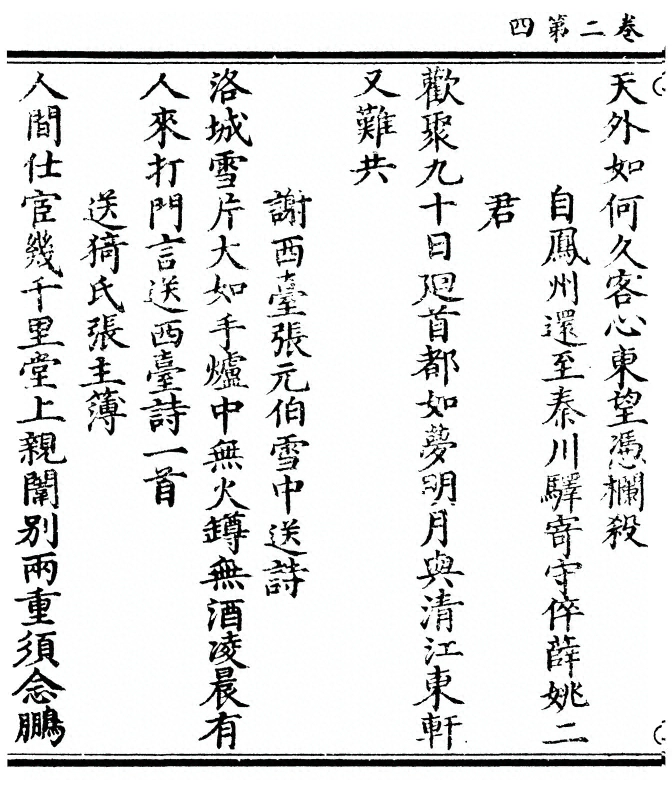 四第二卷
天外如何久客心東望憑欄殺
自鳳州還至秦川驛寄守倅薛姚二
君
歡聚九十日廻首都如夢明月與清江東軒
又難共
謝西臺張元伯雪中送詩
洛城雪片大如手爐中無火罇無酒凌晨有
人來打門言送西臺詩一首
送猗氏張主薄
人間仕宦幾千里堂上親闈别兩重須念鵬